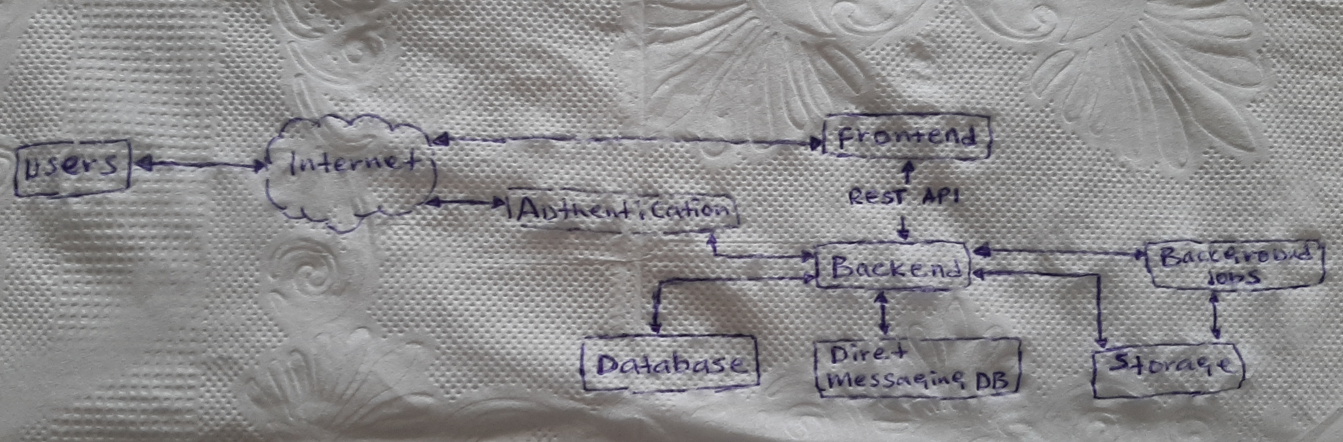 Users
Internet
Frontend
REST API
Authentication
Backend
Background
Jobs
Database
Diret
Messaging DB
Storage